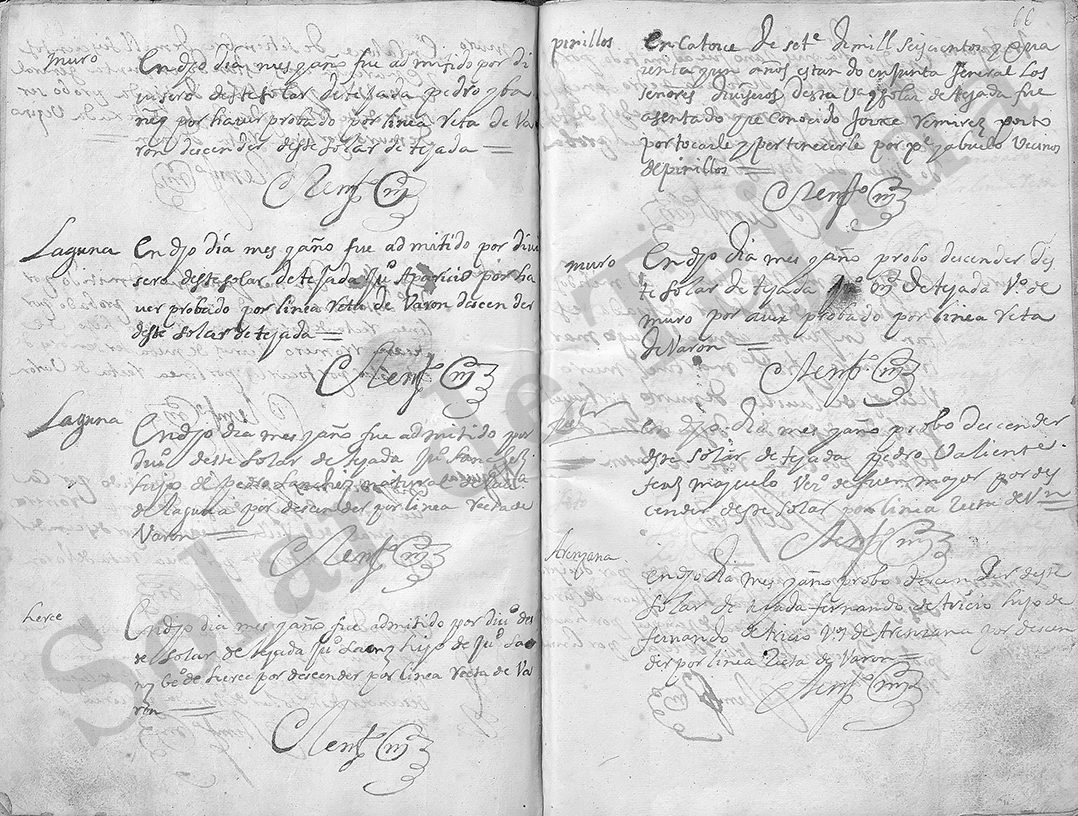 muro
En dho dia mes y año fue admitido por di
uisero deste solar de tejada pedro yba
nez por hauer probado por linea Reta de Va
ron descender deste solar de tejada
Laguna
En dho dia mes y año fue admitido por diui
sero deste solar de tejada Juº Aparicio por ha
uer probado por linea Reta de Varon descender
deste solar de tejada
Laguna
En dho dia mes y año fue admitido por
diuº deste solar de tejada Juº sanchez
hijo de pedro sanchez natural
de laguna por descender por linea Recta de
Varon
herce
En dho dia mes y año fue admitido por diuº des
te solar de tejada Juº saenz hijo de Juº sae
nz de herce por descender por linea Recta de Va
ron
66
pinillos
En catorce de setº de mill seiscientos y qua
renta y un años estando en junta Jeneral los
señores diuiseros desta Vª y solar de tejada fue
asentado y Reconocido Jorxe Remirez
por tocarle y pertenecerle por pe y abuelo Vecinos
de pinillos
muro
En dho dia mes y año probo descender des
te solar de tejada de tejada Vº de
muro por auer probado por linea Reta
de Varon
En dho dia mes y año probo descender
deste solar de tejada pedro Valiente
Veº de fuenmayor por des
cender deste solar por linea Recta de Vn
Arenzana
En dho dia mes y año probo descender deste
solar de tejada fernando de tricio hijo de
fernando de tricio Vº de Arenzana por decen
der por linea Recta de Varon
Solar de Tejada